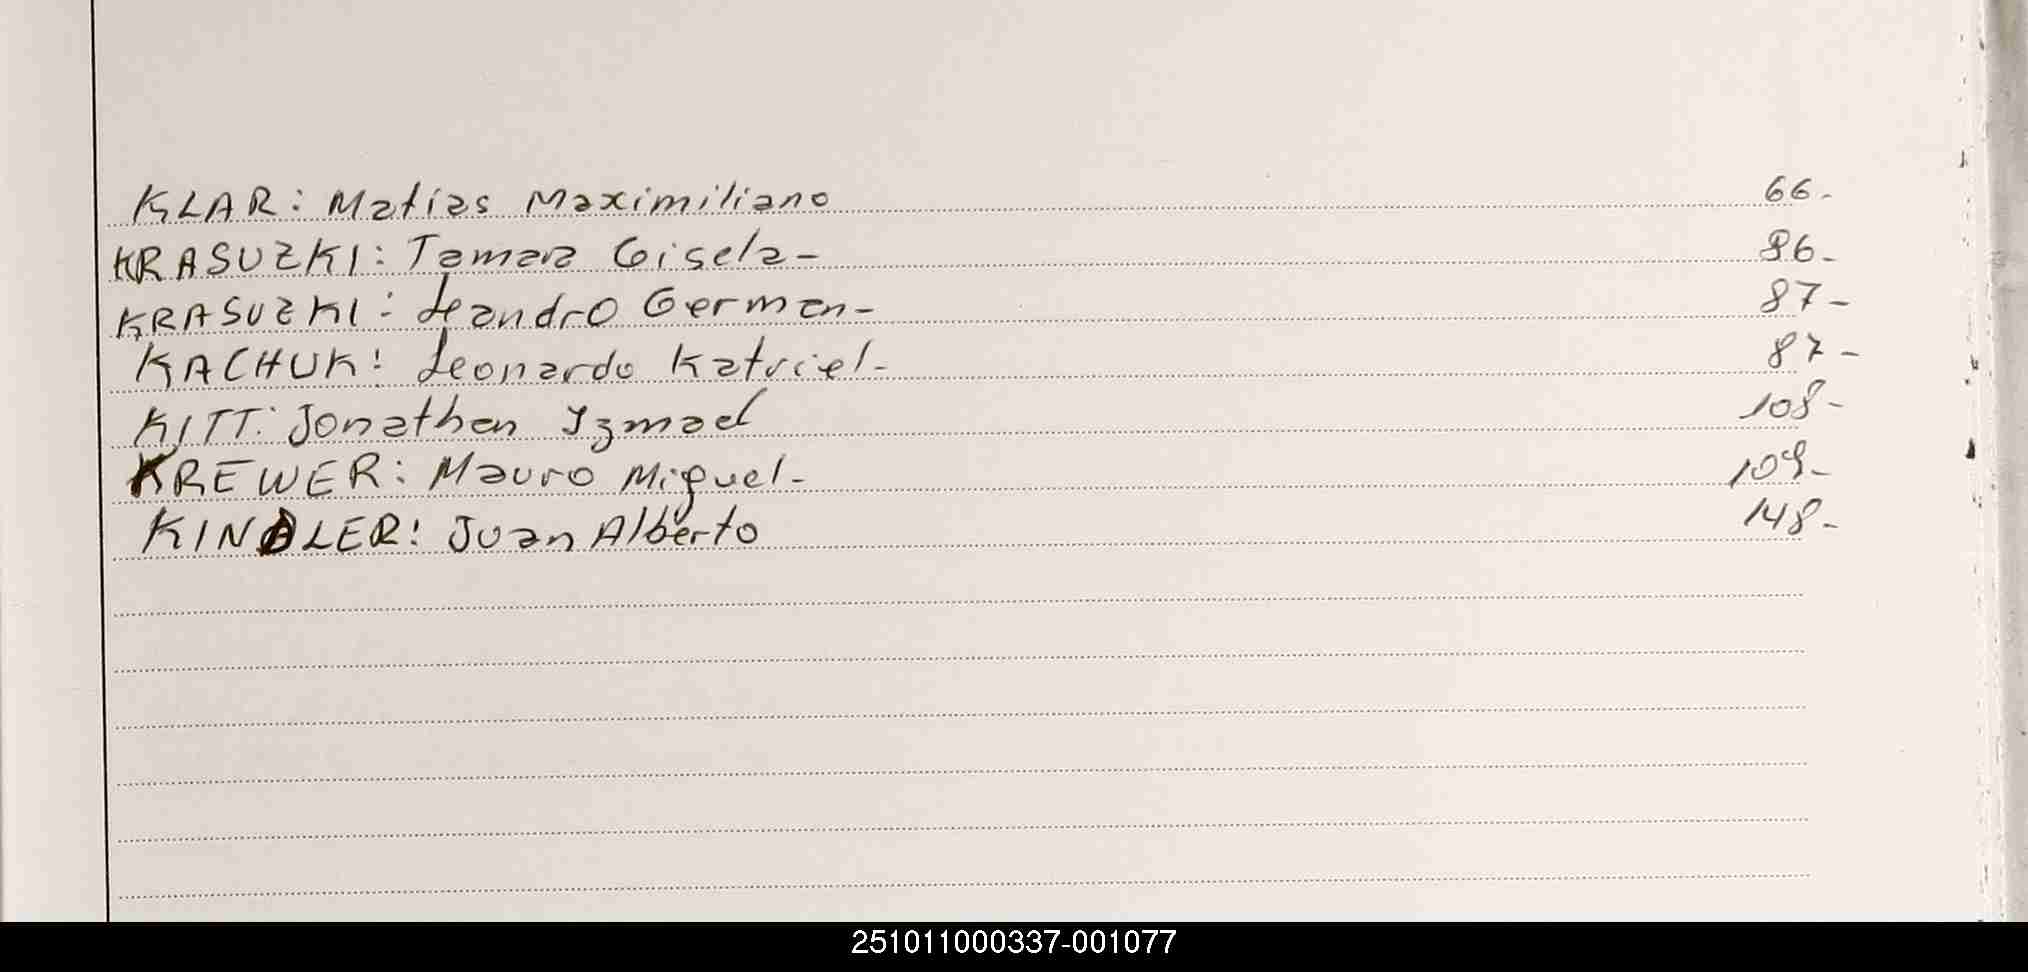 KLAR: Matías Maximiliano 66-
KRASUZKI: Tamara Gisela- 86-
KRASUZKI: Leandro German- 87-
KACHUK: Leonardo Katriel- 87-
KITT: Jonathan Izmael 108-
KREWER: Mauro Miguel- 109-
KINDLER: Juan Alberto 148-
251011000337-001077